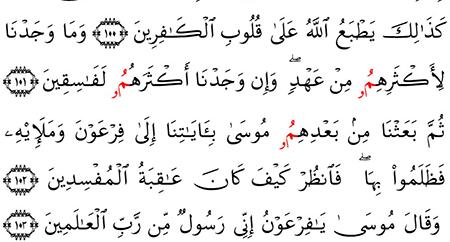 كَذَٰلِكَ يَطْبَعُ ٱللَّهُ عَلَىٰ قُلُوبِ ٱلْكَٰفِرِينَ ١٠٠ وَمَا وَجَدْنَا
لِأَكْثَرِهِمُۥ مِنْ عَهْدٍۖ وَإِن وَجَدْنَا أَكْثَرَهُمُۥ لَفَٰسِقِينَ ١٠١
ثُمَّ بَعَثْنَا مِنۢ بَعْدِهِمُۥ مُوسَىٰ بِـَٔايَٰتِنَا إِلَىٰ فِرْعَوْنَ وَمَلَإِيْهِۦ
فَظَلَمُوا۟ بِهَاۖ فَٱنظُرْ كَيْفَ كَانَ عَٰقِبَةُ ٱلْمُفْسِدِينَ ١٠٢
وَقَالَ مُوسَىٰ يَٰفِرْعَوْنُ إِنِّى رَسُولٌ مِّن رَّبِّ ٱلْعَٰلَمِينَ ١٠٣